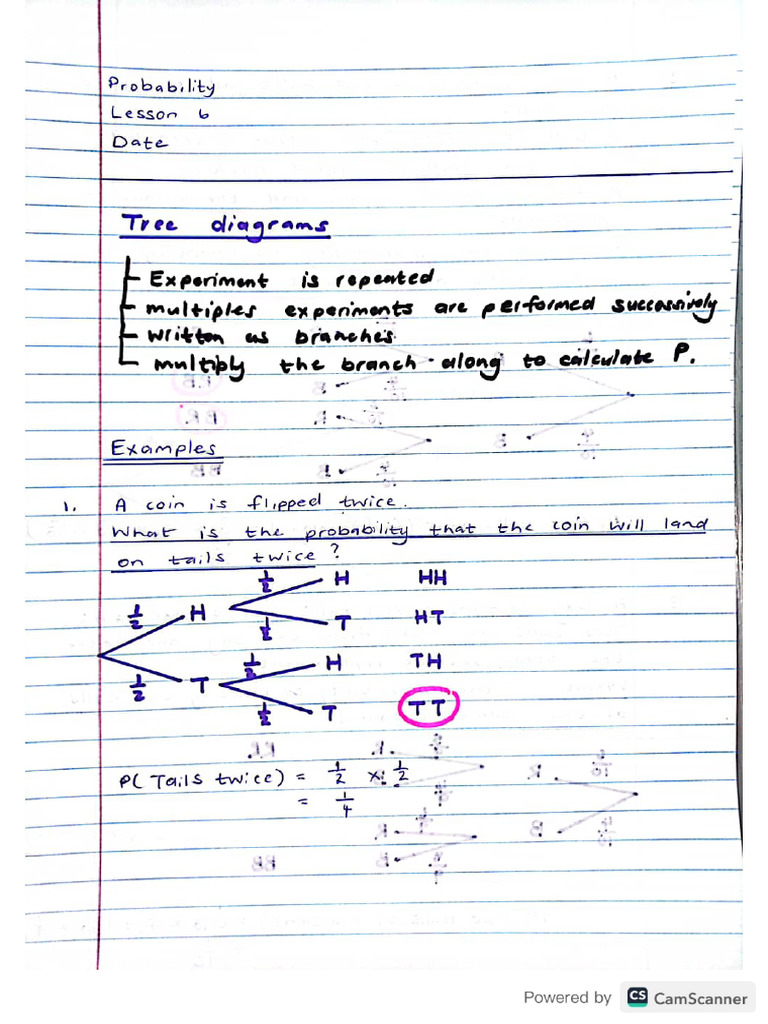 Probability
Lesson 6
Date
Tree diagrams
Experiment is repeated
multiples experiments are performed successively
written as branches
multiply the branch along to calculate P.
Examples
1. A coin is flipped twice.
What is the probability that the coin will land
on tails twice?
1/2 H HH
1/2 H
1/2 T HT
1/2 H TH
1/2 T
1/2 T TT
P(Tails twice) = 1/2 x 1/2
= 1/4
Powered by CS CamScanner